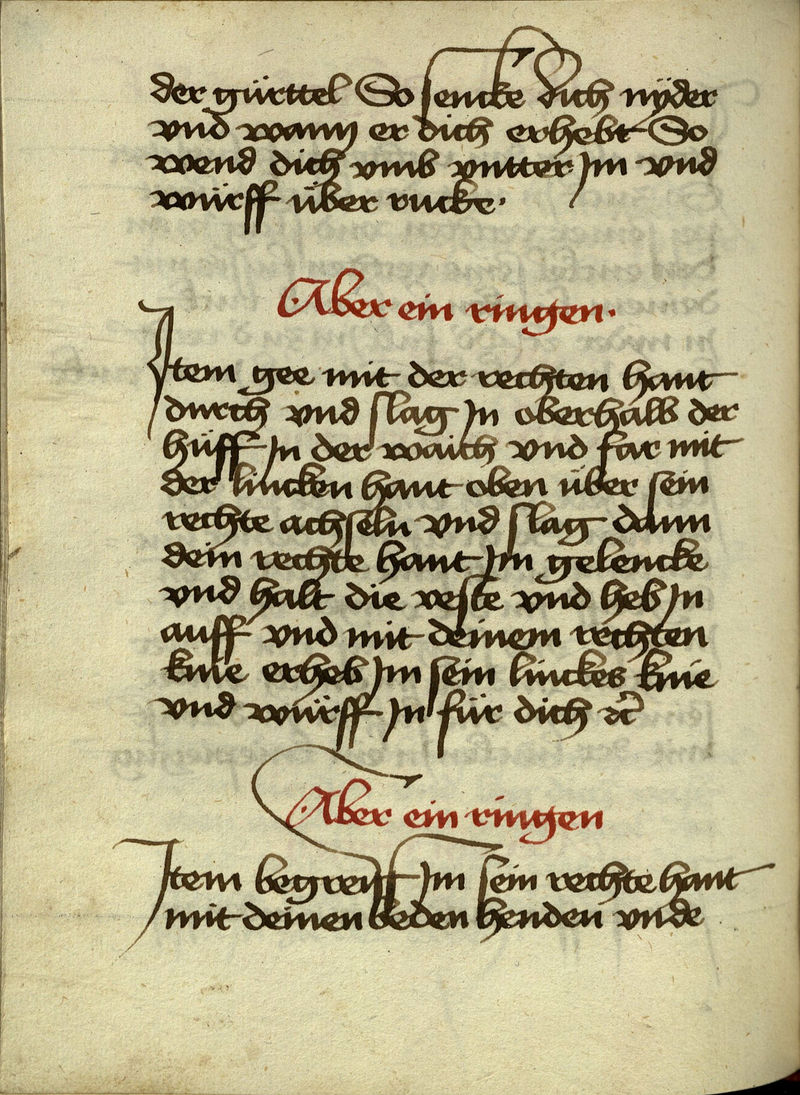 der gürttel So sencke dich nÿder
vnd wann er dich erhebt So
wend dich vmb vntter Jm vnd
würff über rucke·
·Aber ein ringen·
Jtem gee mit der rechten hant
durch vnd slag Jn oberhalb der
hüff Jn der waich vnd far mit
der lincken hant oben über sein
rechte achseln vnd slag dann
dein rechte hant Jm gelencke
vnd halt die veste vnd heb Jn
auff vnd mit deinem rechten
knie erheb Jm sein linckes knie
vnd würff Jn für dich ⁊c̃
·Aber ein ringen
Jtem begreiff Jm sein rechte hant
mit deinen beden henden vnde